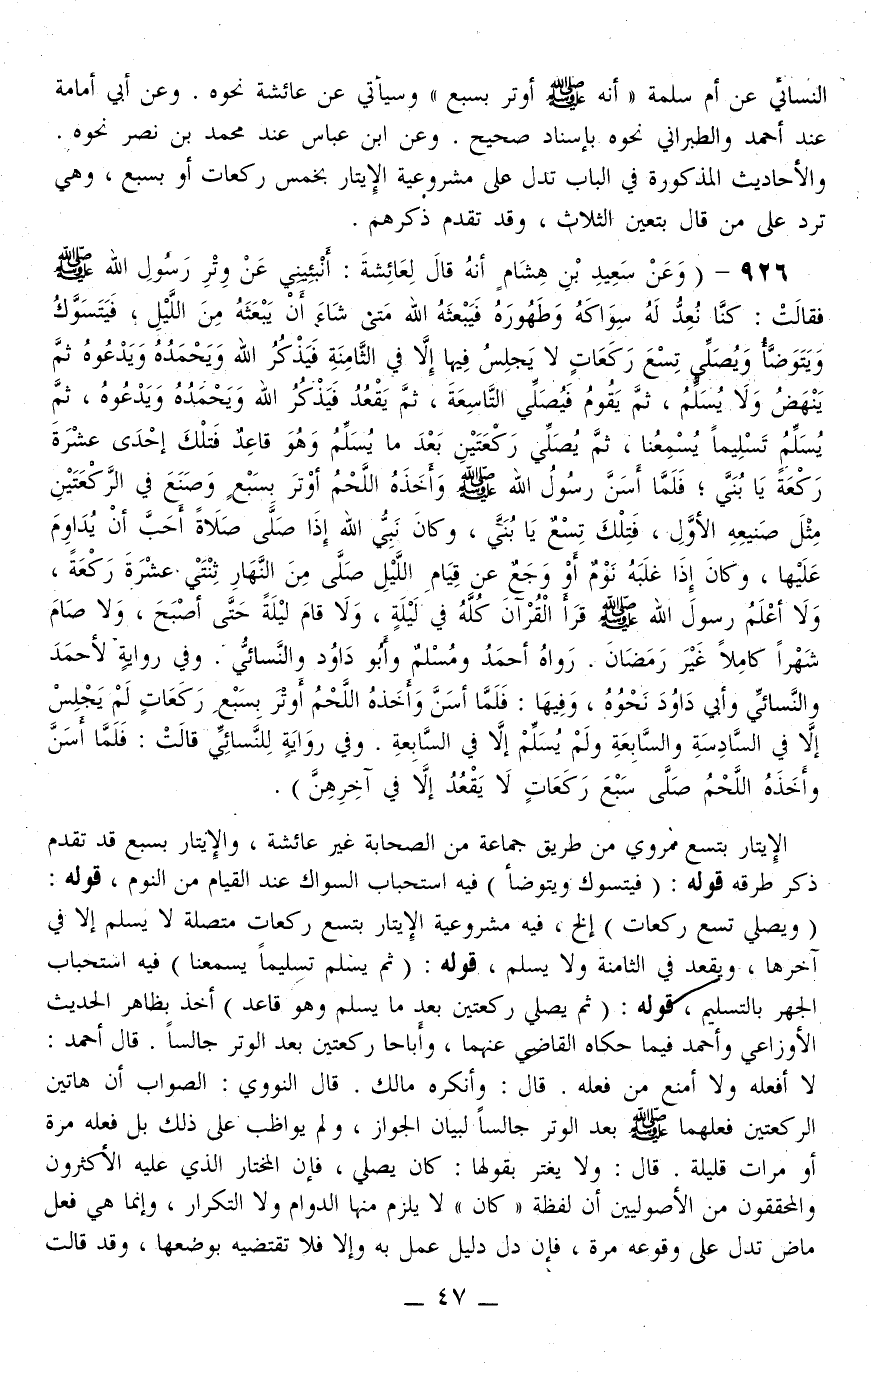 النسائي عن أم سلمة « أنه ﷺ أوتر بسبع » وسيأتي عن عائشة نحوه . وعن أبي أمامة
عند أحمد والطبراني نحوه بإسناد صحيح . وعن ابن عباس عند محمد بن نصر نحوه .
والأحاديث المذكورة في الباب تدل على مشروعية الإيتار بخمس ركعات أو بسبع ، وهي
ترد على من قال بتعين الثلاث ، وقد تقدم ذكرهم .
٩٢٦ - ( وَعَنْ سَعِيدِ بْنِ هِشَامٍ أنهُ قالَ لِعَائِشةَ : أَنْبِئِينِي عَنْ وِتْرِ رَسُولِ الله ﷺ
فقالَتْ : كنَّا نُعِدُّ لَهُ سِوَاكَهُ وَطَهُورَهُ فَيَبْعثَهُ الله مَتىٰ شاءَ أَنْ يَبْعَثَهُ مِنَ اللَّيْلِ ، فَيَتَسَوَّكُ
وَيَتَوَضَّأُ وَيُصَلِّي تِسْعَ رَكَعَاتٍ لا يَجلِسُ فِيها إِلَّا في الثَّامِنَةِ فَيَذْكُرُ الله وَيَحْمَدُهُ وَيَدْعُوهُ ثمَّ
يَنْهَضُ وَلَا يُسَلِّمُ ، ثمَّ يَقُومُ فَيُصَلِّي التَّاسِعَةَ ، ثمَّ يَقْعُدُ فَيَذْكُرُ الله وَيَحْمَدُهُ وَيَدْعُوهُ ، ثمَّ
يُسَلِّمُ تَسْلِيماً يُسْمِعُنا ، ثمَّ يُصَلِّي رَكْعَتَيْنِ بَعْدَ ما يُسَلِّمُ وَهُوَ قاعِدٌ فَتلْكَ إحْدَى عشْرَةَ
رَكْعَةً يَا بُنَيَّ ؛ فَلَمَّا أَسَنَّ رسُولُ الله ﷺ وَأَخَذَهُ اللَّحْمُ أوْتَرَ بِسَبْعٍ وَصَنَعَ في الرَّكْعَتَيْنِ
مِثْلَ صَنيعِهِ الأوَّلِ ، فَتِلْكَ تِسْعٌ يَا بُنَيَّ ، وكانَ نَبِيُّ الله إِذَا صَلَّى صَلَاةً أَحَبَّ أنْ يُدَاوِمَ
عَلَيْها ، وكانَ إِذَا غلَبَهُ نَوْمٌ أَوْ وَجَعٌ عن قِيَامِ اللَّيْلِ صَلَّى مِنَ النَّهَارِ ثِنْتَيْ عشْرَةَ رَكْعَةً ،
وَلَا أعْلَمُ رسولَ الله ﷺ قرَأَ الْقُرْآنَ كلَّهُ في لَيْلَةٍ ، وَلَا قامَ ليْلَةً حَتَّى أصْبَحَ ، وَلا صَامَ
شهْراً كامِلاً غَيْرَ رَمَضَانَ . رَواهُ أحمَدُ ومُسْلمٌ وأَبُو دَاوُد والنَّسائيُّ . وفي روايةٍ لأحمَدَ
والنَّسائيِّ وأبي دَاوُدَ نَحْوُهُ ، وَفِيهَا : فَلَمَّا أسَنَّ وَأخَذهُ اللَّحْمُ أَوتْرَ بِسَبْعِ رَكَعَاتٍ لَمْ يَجْلِسْ
إلَّا في السَّادِسَةِ والسَّابعَةِ ولَمْ يُسَلِّمْ إلَّا في السَّابِعةِ . وفي روَايَةٍ لِلنَّسائيِّ قالَتْ : فَلَمَّا أَسَنَّ
وأَخَذَهُ اللَّحْمُ صَلَّى سَبْعَ رَكَعَاتٍ لَا يَقْعُدُ إلَّا في آخِرِهِنَّ ) .
الإيتار بتسع مروي من طريق جماعة من الصحابة غير عائشة ، والإيتار بسبع قد تقدم
ذكر طرقه قوله : ( فيتسوك ويتوضأ ) فيه استحباب السواك عند القيام من النوم ، قوله :
( ويصلي تسع ركعات ) إلخ ، فيه مشروعية الإيتار بتسع ركعات متصلة لا يسلم إلا في
آخرها ، ويقعد في الثامنة ولا يسلم ، قوله : ( ثم يسلم تسليماً يسمعنا ) فيه استحباب
الجهر بالتسليم ، قوله : ( ثم يصلي ركعتين بعد ما يسلم وهو قاعد ) أخذ بظاهر الحديث
الأوزاعي وأحمد فيما حكاه القاضي عنهما ، وأباحا ركعتين بعد الوتر جالساً . قال أحمد :
لا أفعله ولا أمنع من فعله . قال : وأنكره مالك . قال النووي : الصواب أن هاتين
الركعتين فعلهما ﷺ بعد الوتر جالساً لبيان الجواز ، ولم يواظب على ذلك بل فعله مرة
أو مرات قليلة . قال : ولا يغتر بقولها : كان يصلي ، فإن المختار الذي عليه الأكثرون
والمحققون من الأصوليين أن لفظة « كان » لا يلزم منها الدوام ولا التكرار ، وإنما هي فعل
ماض تدل على وقوعه مرة ، فإن دل دليل عمل به وإلا فلا تقتضيه بوضعها ، وقد قالت
— ٤٧ —